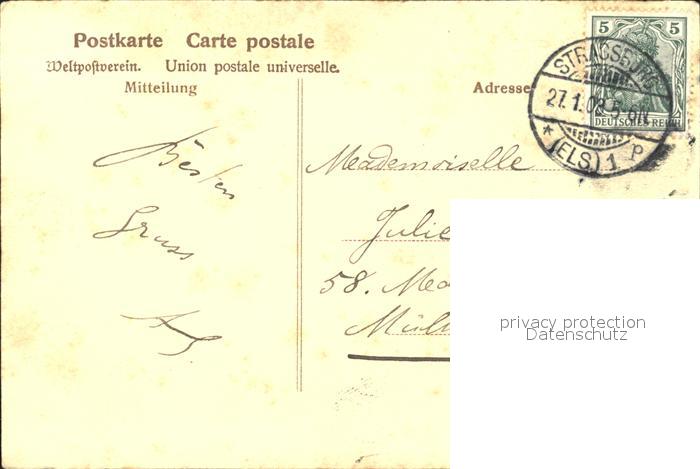 Postkarte Carte postale
Weltpostverein. Union postale universelle.
Mitteilung
Adresse
5 5
DEUTSCHES REICH
STRASSBURG
27.1.08.5-6N.
* (ELS.) 1 P
Besten
Gruss
Mademoiselle
Julie
58.
Mülh
privacy protection
Datenschutz